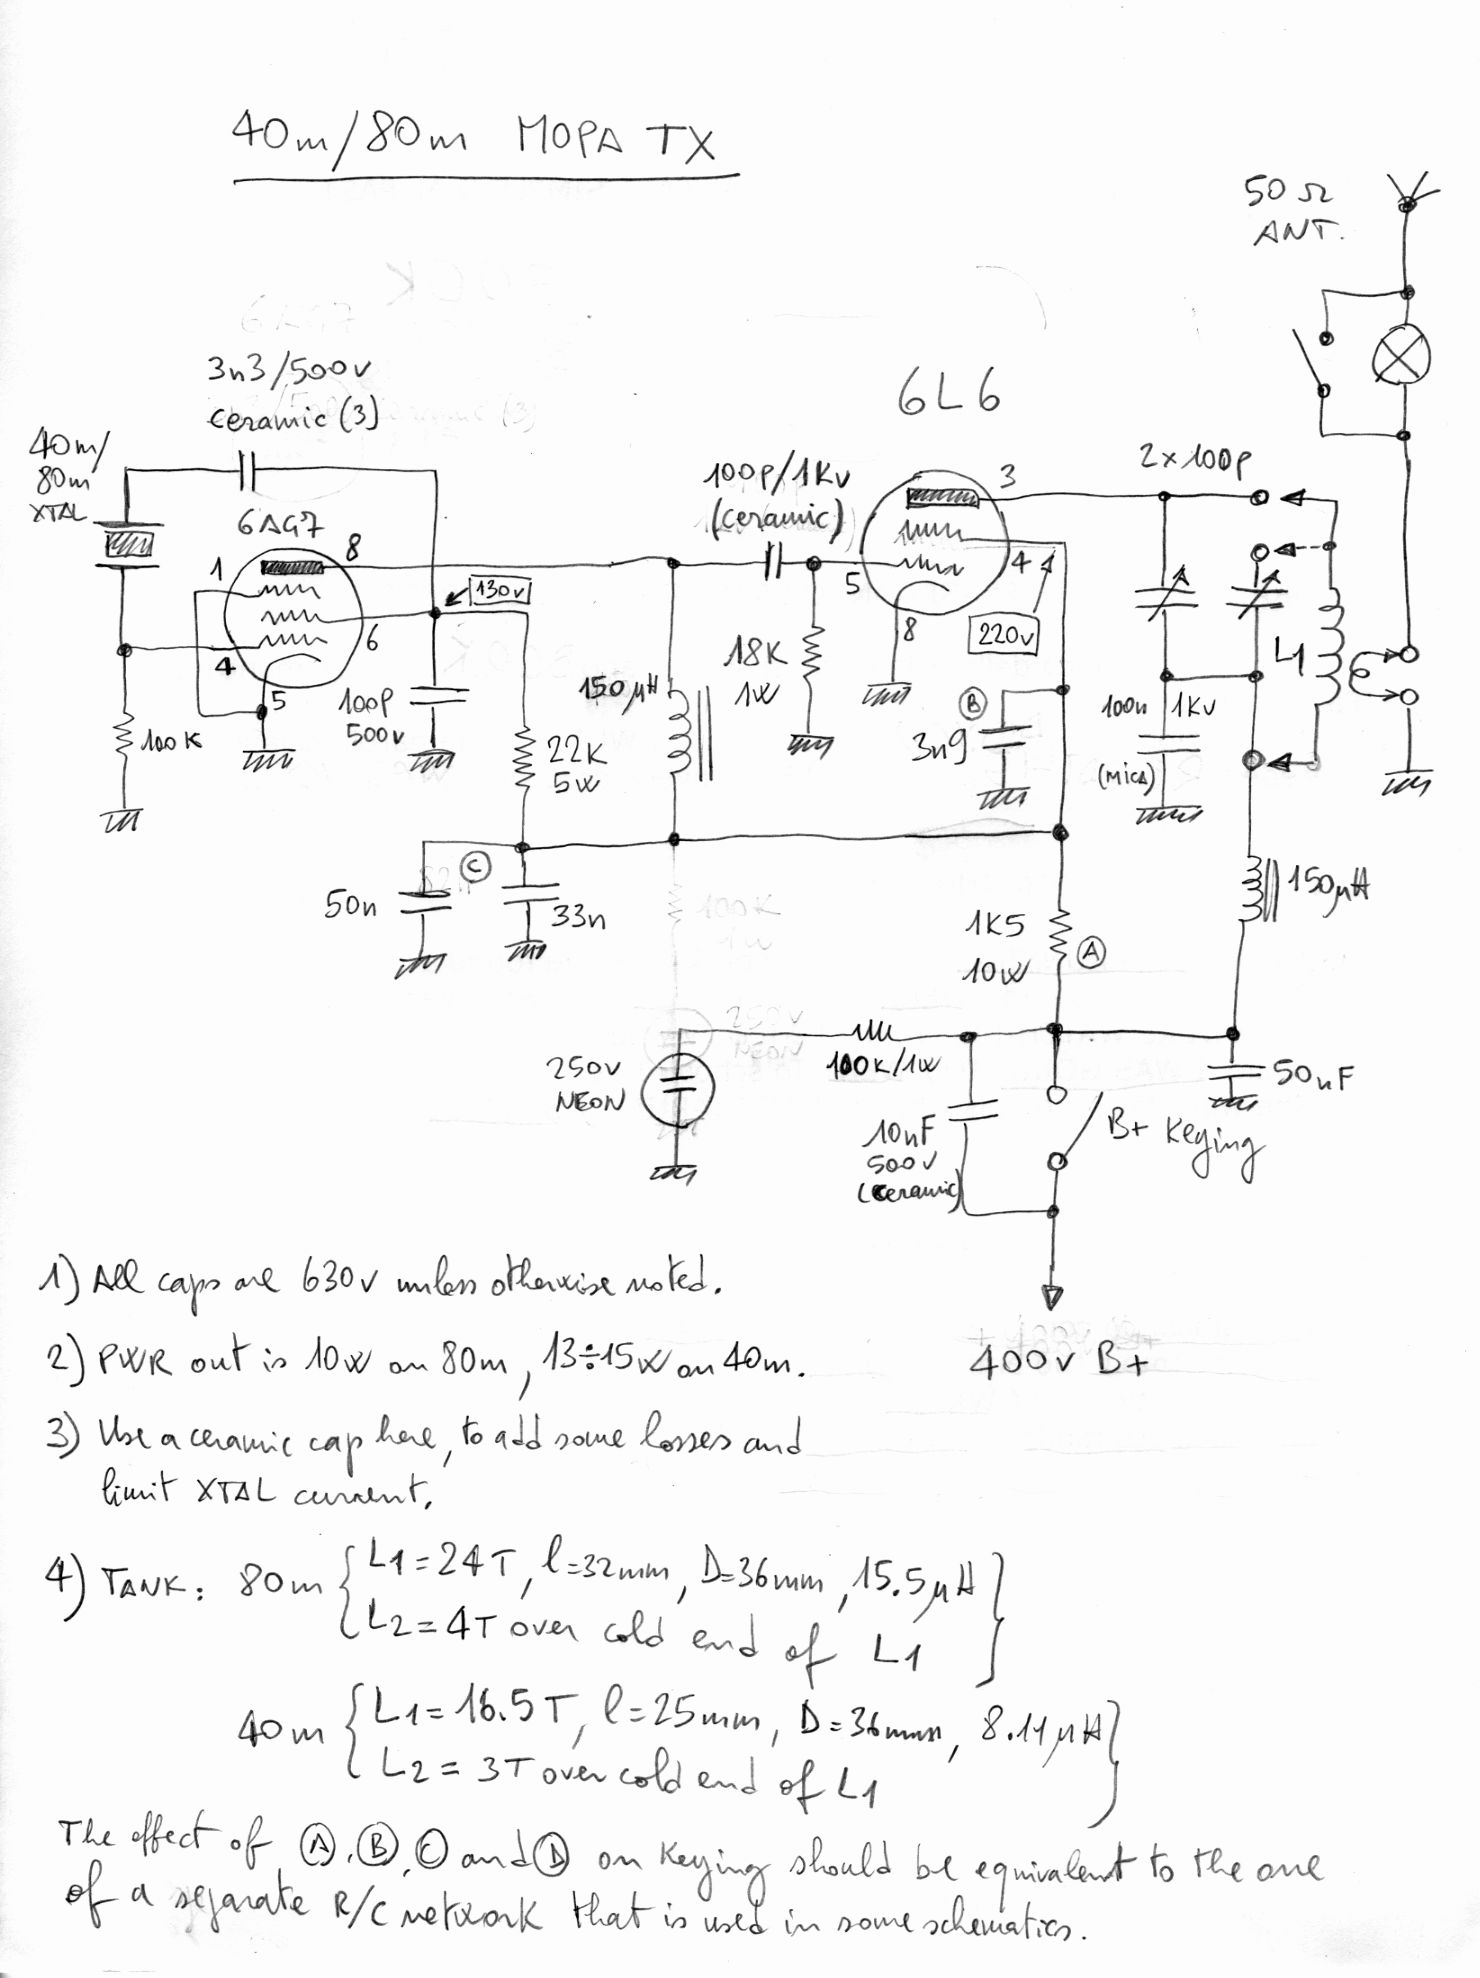 40m/80m MOPA TX
50 Ω
ANT.
3n3/500v
ceramic (3)
6L6
40m/
80m
XTAL
6AG7
100p/1Kv
(ceramic)
3
2x100p
1
8
130v
5
4
4
6
5
8
220v
18K
1W
L1
100K
100p
500v
150μH
22K
5W
B
3n9
100n 1KV
(MICA)
C
50n
33n
1K5
10W
A
150μH
250v
NEON
100K/1W
50nF
10nF
500V
(ceramic)
B+ Keying
400v B+
1) All caps are 630v unless otherwise noted.
2) PWR out is 10W on 80m, 13÷15W on 40m.
3) Use a ceramic cap here, to add some losses and
limit XTAL current.
4) TANK: 80m { L1=24T, l=32mm, D=36mm, 15.5μH }
L2=4T over cold end of L1
40m { L1=16.5T, l=25mm, D=36mm, 8.11μH }
L2=3T over cold end of L1
The effect of A, B, C and D on Keying should be equivalent to the one
of a separate R/C network that is used in some schematics.